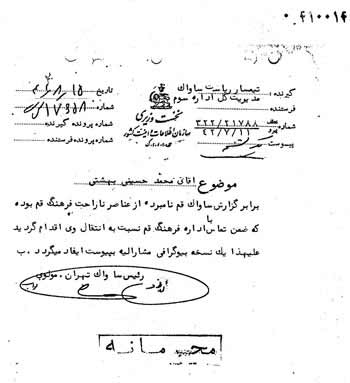 ۰.۴۱۰۰۱۴
گیرنده : تیمسار ریاست ساواک
مدیریت کل اداره سوم
فرستنده :
شماره ۳۲۲/۲۱۷۸۸
۴۲/۷/۱۱
پیوست
نخست وزیری
سازمان اطلاعات و امنیت کشور
تاریخ ۱۵/۸/
شماره
شماره پرونده گیرنده
شماره پرونده فرستنده
موضوع : اقای محمد حسینی بهشتی
برابر گزارش ساواک قم نامبرده از عناصر ناراحت فرهنگ قم بوده
که ضمن تماس با اداره فرهنگ قم نسبت به انتقال وی اقدام گردید
علیهذا یک نسخه بیوگرافی مشارالیه بپیوست ایفاد میگردد . ب
رئیس ساواک تهران . مولوی
محرمانه